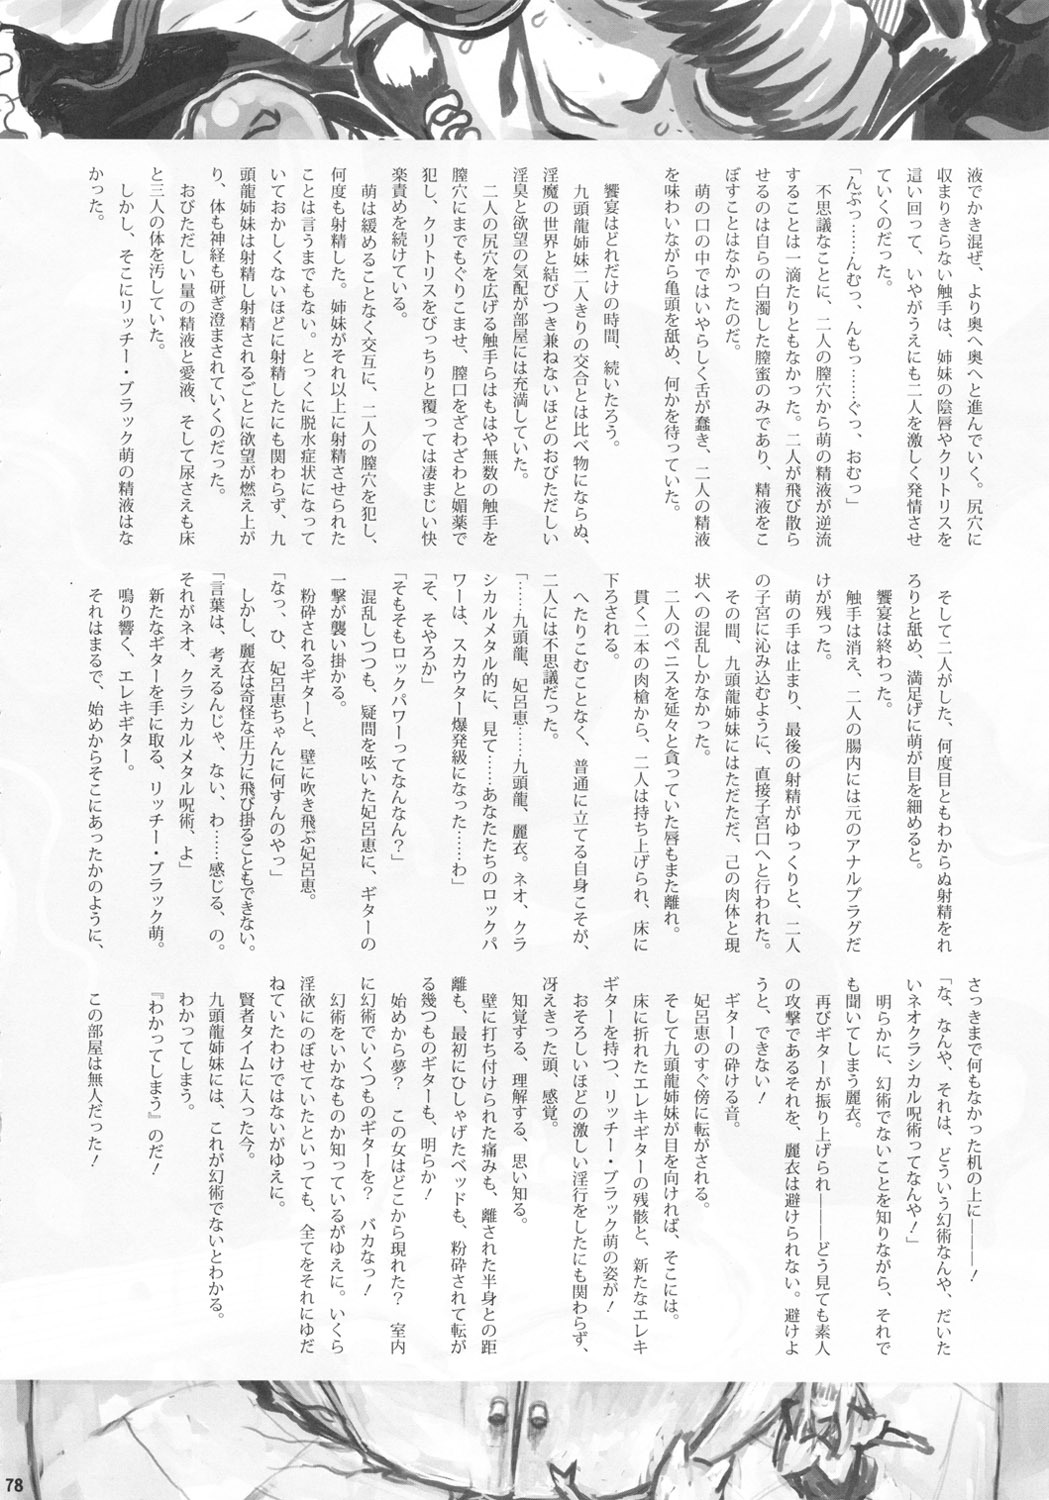 液でかき混ぜ、より奥へ奥へと進んでいく。尻穴に
収まりきらない触手は、姉妹の陰唇やクリトリスを
這い回って、いやがうえにも二人を激しく発情させ
ていくのだった。
「んぶっ……んむっ、んもっ……ぐっ、おむっ」
不思議なことに、二人の膣穴から萌の精液が逆流
することは一滴たりともなかった。二人が飛び散ら
せるのは自らの白濁した膣蜜のみであり、精液をこ
ぼすことはなかったのだ。
萌の口の中ではいやらしく舌が蠢き、二人の精液
を味わいながら亀頭を舐め、何かを待っていた。
饗宴はどれだけの時間、続いたろう。
九頭龍姉妹二人きりの交合とは比べ物にならぬ、
淫魔の世界と結びつき兼ねないほどのおびただしい
淫臭と欲望の気配が部屋には充満していた。
二人の尻穴を広げる触手らはもはや無数の触手を
膣穴にまでもぐりこませ、膣口をざわざわと媚薬で
犯し、クリトリスをびっちりと覆っては凄まじい快
楽責めを続けている。
萌は緩めることなく交互に、二人の膣穴を犯し、
何度も射精した。姉妹がそれ以上に射精させられた
ことは言うまでもない。とっくに脱水症状になって
いておかしくないほどに射精したにも関わらず、九
頭龍姉妹は射精し射精されるごとに欲望が燃え上が
り、体も神経も研ぎ澄まされていくのだった。
おびただしい量の精液と愛液、そして尿さえも床
と三人の体を汚していた。
しかし、そこにリッチー・ブラック萌の精液はな
かった。
そして二人がした、何度目ともわからぬ射精をれ
ろりと舐め、満足げに萌が目を細めると。
饗宴は終わった。
触手は消え、二人の腸内には元のアナルプラグだ
けが残った。
萌の手は止まり、最後の射精がゆっくりと、二人
の子宮に沁み込むように、直接子宮口へと行われた。
その間、九頭龍姉妹にはただただ、己の肉体と現
状への混乱しかなかった。
二人のペニスを延々と貪っていた唇もまた離れ。
貫く二本の肉槍から、二人は持ち上げられ、床に
下ろされる。
へたりこむことなく、普通に立てる自身こそが、
二人には不思議だった。
「……九頭龍、妃呂恵……九頭龍、麗衣。ネオ、クラ
シカルメタル的に、見て……あなたたちのロックパ
ワーは、スカウター爆発級になった……わ」
「そ、そやろか」
「そもそもロックパワーってなんなん？」
混乱しつつも、疑問を呟いた妃呂恵に、ギターの
一撃が襲い掛かる。
粉砕されるギターと、壁に吹き飛ぶ妃呂恵。
「なっ、ひ、妃呂恵ちゃんに何すんのやっ」
しかし、麗衣は奇怪な圧力に飛び掛ることもできない。
「言葉は、考えるんじゃ、ない、わ……感じる、の。
それがネオ、クラシカルメタル呪術、よ」
新たなギターを手に取る、リッチー・ブラック萌。
鳴り響く、エレキギター。
それはまるで、始めからそこにあったかのように、
さっきまで何もなかった机の上に――！
「な、なんや、それは、どういう幻術なんや、だいた
いネオクラシカル呪術ってなんや！」
明らかに、幻術でないことを知りながら、それで
も聞いてしまう麗衣。
再びギターが振り上げられ――どう見ても素人
の攻撃であるそれを、麗衣は避けられない。避けよ
うと、できない！
ギターの砕ける音。
妃呂恵のすぐ傍に転がされる。
そして九頭龍姉妹が目を向ければ、そこには。
床に折れたエレキギターの残骸と、新たなエレキ
ギターを持つ、リッチー・ブラック萌の姿が！
おそろしいほどの激しい淫行をしたにも関わらず、
冴えきった頭、感覚。
知覚する、理解する、思い知る。
壁に打ち付けられた痛みも、離された半身との距
離も、最初にひしゃげたベッドも、粉砕されて転が
る幾つものギターも、明らか！
始めから夢？　この女はどこから現れた？　室内
に幻術でいくつものギターを？　バカなっ！
幻術をいかなものか知っているがゆえに。いくら
淫欲にのぼせていたといっても、全てをそれにゆだ
ねていたわけではないがゆえに。
賢者タイムに入った今。
九頭龍姉妹には、これが幻術でないとわかる。
わかってしまう。
『わかってしまう』のだ！
この部屋は無人だった！
78